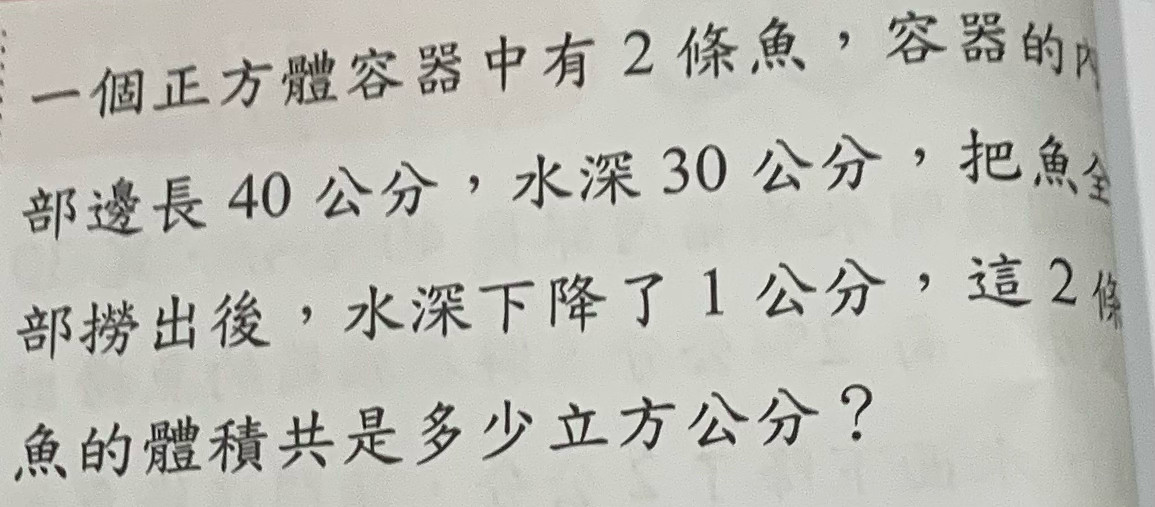 一個正方體容器中有 2 條魚，容器的內
部邊長 40 公分，水深 30 公分，把魚全
部撈出後，水深下降了 1 公分，這 2 條
魚的體積共是多少立方公分？